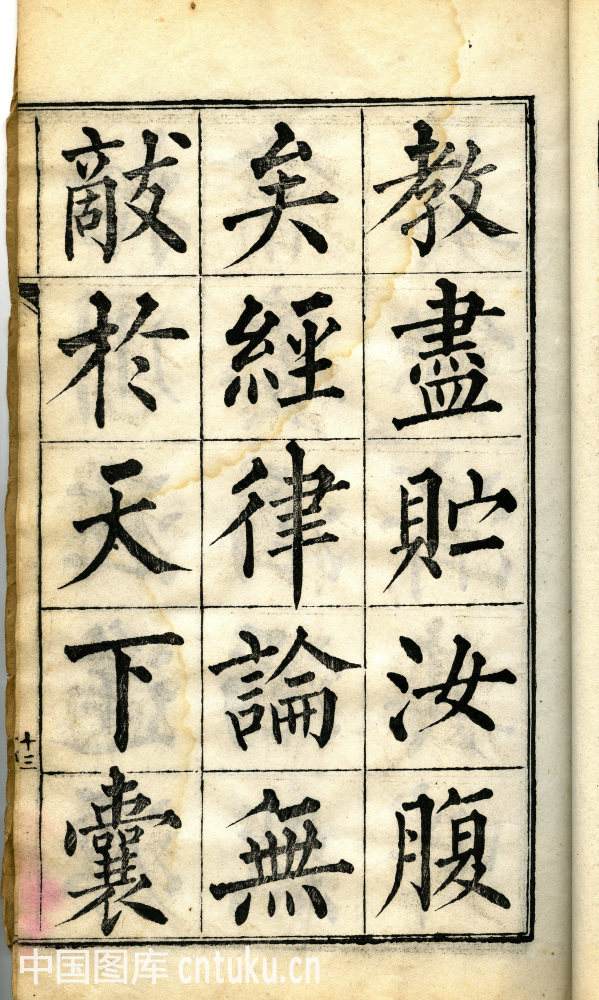 教盡貯汝腹
矣經律論無
敵於天下囊
十三
中国图库 cntuku.cn